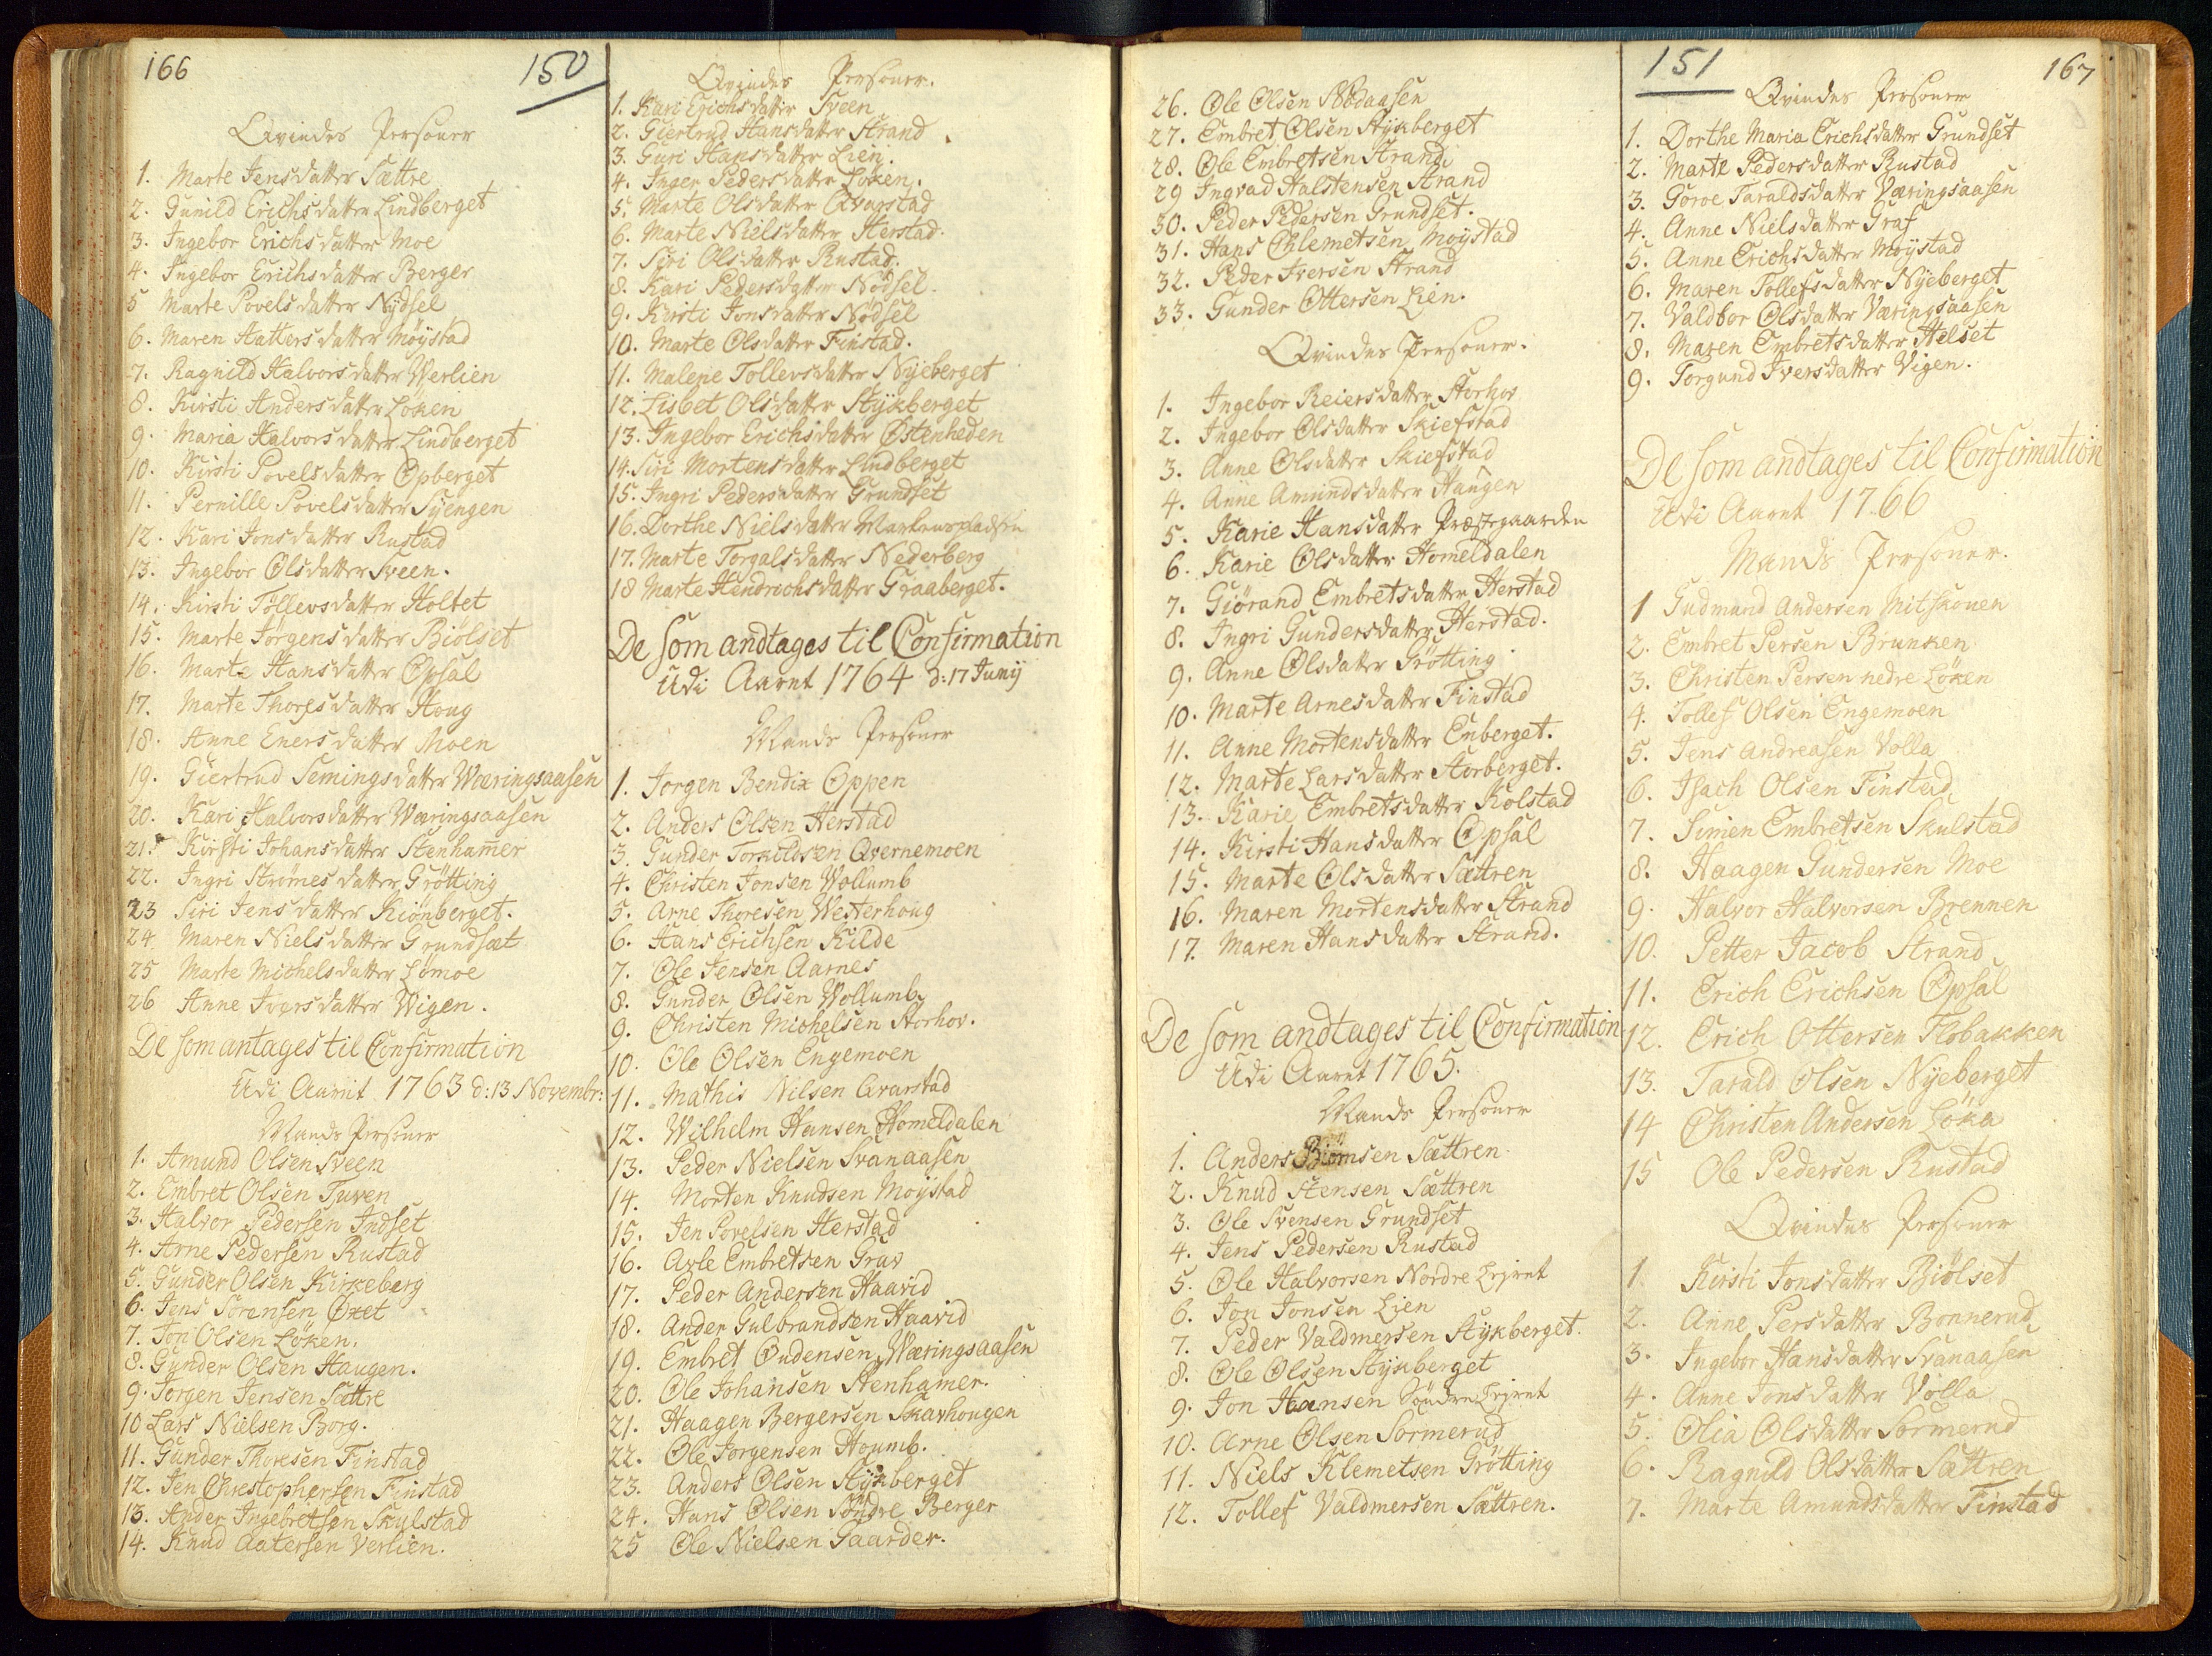 166
150
Qvindes Personer
1. Marte Jensdatter Sættre
2. Gunild Erichsdatter Lindberget
3. Ingebor Erichsdatter Moe
4. Ingebor Erichsdatter Berger
5 Marte Povelsdatter Nydsel
6. Maren Hattersdatter Möystad
7. Ragnild Halvorsdatter Werlien
8. Kirsti Andersdatter Löken
9. Maria Halvorsdatter Lindberget
10. Kirsti Povelsdatter Opberget
11. Pernille Povelsdatter Syengen
12. Kari Jonsdatter Rustad
13. Ingebor Olsdatter Sveen.
14. Kirsti Töllevsdatter Holtet
15. Marte Jörgensdatter Biölset
16. Marte Hansdatter Opsal
17. Marte Thoresdatter Houg
18. Anne Enersdatter Moen
19. Giertrud Semingsdatter Wæringsaasen
20. Kari Halvorsdatter Wæringsaasen
21. Kirsti Johansdatter Stenhamer
22. Ingri Strömesdatter Grötting
23 Siri Jensdatter Kiönberget.
24. Maren Nielsdatter Grundsæt
25 Marte Michelsdatter Lömoe
26 Anne Iversdatter Wigen.
De som antages til Confirmation
Udi Aaret 1763 d: 13 Novembr:
Mands Personer
1. Amund Olsen Sveen
2. Embret Olsen Tuven
3. Halvor Pedersen Indset
4. Arne Pedersen Rustad
5. Gunder Olsen Kirkeberg
6. Jens Sörensen Oxet
7. Jon Olsen Löken.
8. Gunder Olsen Haugen.
9. Jorgen Jensen Sættre
10 Lars Nielsen Borg.
11. Gunder Thoresen Finstad
12. Jen Chrestophersen Finstad
13. Ander Ingebretsen Skulstad
14. Knud Aatersen Verlien.
Qvindes Personer.
1. Kari Erichsdatter Sveen
2. Giertrud Hansdatter Strand
3. Guri Hansdatter Lien.
4. Inger Pedersdatter Löken.
5. Marte Olsdatter Qvarstad
6. Marte Nielsdatter Herstad.
7. Siri Olsdatter Rustad.
8. Kari Pedersdatter Nödsel.
9. Kirsti Jonsdatter Nödsel
10. Marte Olsdatter Finstad.
11. Malene Tollevsdatter Nyeberget
12. Lisbet Olsdatter Stykberget
13. Ingebor Erichsdatter Östenheden
14. Siri Mortensdatter Lindberget
15. Ingri Pedersdatter Grundset
16. Dorthe Nielsdatter Markenspladsen
17. Marte Torgalsdatter Nederberg
18 Marte Hendrichsdatter Graaberget.
De som andtages til Confirmation
Udi Aaret 1764 d: 17 Junij
Mands Personer
1. Jorgen Bendix Oppen
2. Anders Olsen Herstad
3. Gunder Torkildsen Qvernemoen
4. Christen Jonsen Wollumb
5. Arne Thoresen Westerhoug
6. Hans Erichsen Kilde
7. Ole Jensen Aarnes
8. Gunder Olsen Wollumb
9. Christen Michelsen Storhov.
10. Ole Olsen Engemoen
11. Mathis Nilsen Qvarstad
12. Wilhelm Hansen Homeldalen
13. Peder Nielsen Svanaasen
14. Morten Knudsen Moystad
15. Jen Povelsen Herstad
16. Avle Embretsen Grav
17. Peder Andersen Haavid
18. Ander Gulbrandsen Haavid
19. Embret Oudensen Wæringsaasen
20. Ole Johansen Stenhamer.
21. Haagen Bergersen Skavhougen
22. Ole Jorgensen Houmb.
23. Anders Olsen Stykberget
24. Hans Olsen Söndre Berger
25 Ole Nielsen Gaarder.
26. Ole Olsen Nödaasen
27. Embret Olsen Stykberget
28. Ole Embretsen Strand
29 Ingvad Halstensen Strand
30. Peder Pedersen Grundset.
31. Hans Chlemetsen Moystad
32. Peder Iversen Strand
33. Gunder Ottersen Lien.
Qvindes Personer.
1. Ingebor Reiersdatter Storhov
2. Ingebor Olsdatter Skiefstad
3. Anne Olsdatter Skiefstad
4. Anne Amundsdatter Haugen
5. Karie Hansdatter Præstegaarden
6. Karie Olsdatter Homeldalen
7. Giörand Embretsdatter Herstad
8. Ingri Gundersdatter Herstad.
9. Anne Olsdatter Grötting
10. Marte Arnesdatter Finstad
11. Anne Mortensdatter Enberget.
12. Marte Larsdatter Storberget.
13. Karie Embretsdatter Kolstad
14. Kirsti Hansdatter Opsal
15. Marte Olsdatter Sættren
16. Maren Mortensdatter Strand
17. Maren Hansdatter Strand.
De som andtages til Confirmation
Udi Aaret 1765.
Mands Personer
1. Anders Biörnsen Sættren.
2. Knud Stensen Sættren
3. Ole Svensen Grundset
4. Jens Pedersen Rustad
5. Ole Halvorsen Nordre Lejret
6. Jon Jonsen Lien
7. Peder Valdmersen Stykberget.
8. Ole Olsen Stykberget
9. Jon Hansen Söndre Lejret
10. Arne Olsen Sormerud
11. Niels Klemetsen Grötting
12. Tollef Valdmersen Sættren.
151
167
Qvindes Personer
1. Dorthe Maria Erichsdatter Grundset
2. Marte Pedersdatter Rustad
3. Goroe Taraldsdatter Væringsaasen
4. Anne Nielsdatter Graf
5. Anne Erichsdatter Moystad
6. Maren Tollefsdatter Nyeberget
7. Valdbor Olsdatter Væringsaasen
8. Maren Embretsdatter Helset
9. Torgund Iversdatter Vigen.
De som andtages til Confirmation
Udi Aaret 1766
Mands Personer.
1 Gudmund Andersen Mitskouen
2. Embret Persen Brunken
3. Christen Persen nedre Löken
4. Tollef Olsen Engemoen
5. Jens Andreasen Volla
6. Isach Olsen Finstad
7. Simen Embretsen Skulstad
8. Haagen Gundersen Moe
9. Halvor Halvorsen Brennen
10. Petter Jacob Strand
11. Erich Erichsen Opsal
12. Erich Ottersen Flobakken
13. Tarald Olsen Nyeberget
14 Christen Andersen Löka
15 Ole Pedersen Rustad
Qvindes Personer
1. Kirsti Jonsdatter Biölset
2. Anne Persdatter Bonnerud
3. Ingebor Hansdatter Svanaasen
4. Anne Jonsdatter Volla
5. Olia Olsdatter Sormerud
6. Ragnild Olsdatter Sættren
7. Marte Amundsdatter Finstad